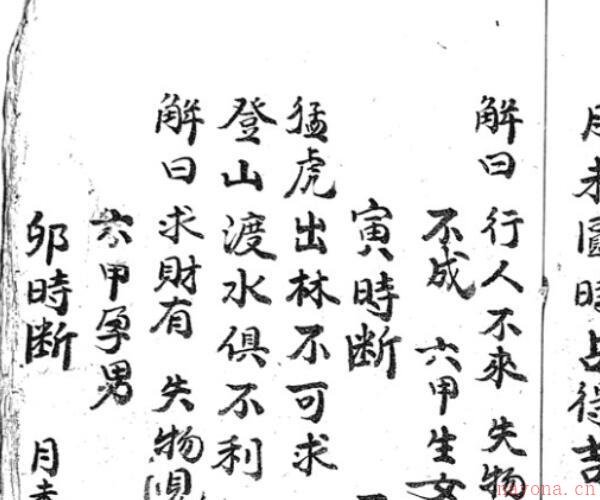 月未圓時占得吉
解曰行人不來 失物
不成 六甲生女
寅時断
猛虎出林不可求
登山渡水俱不利
解曰求財有 失物
六甲孕男
卯時断 月
nayona.cn